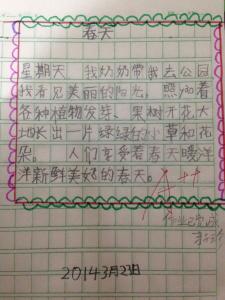 春天
星期天，我奶奶带我去公园
我看见美丽的阳光，照yào着
各种植物发芽、果树开花，大
地长出一片绿绿的小草和花
朵。人们享受着春天暖洋
洋新鲜美好的春天。
作业已完成
2014年3月23日